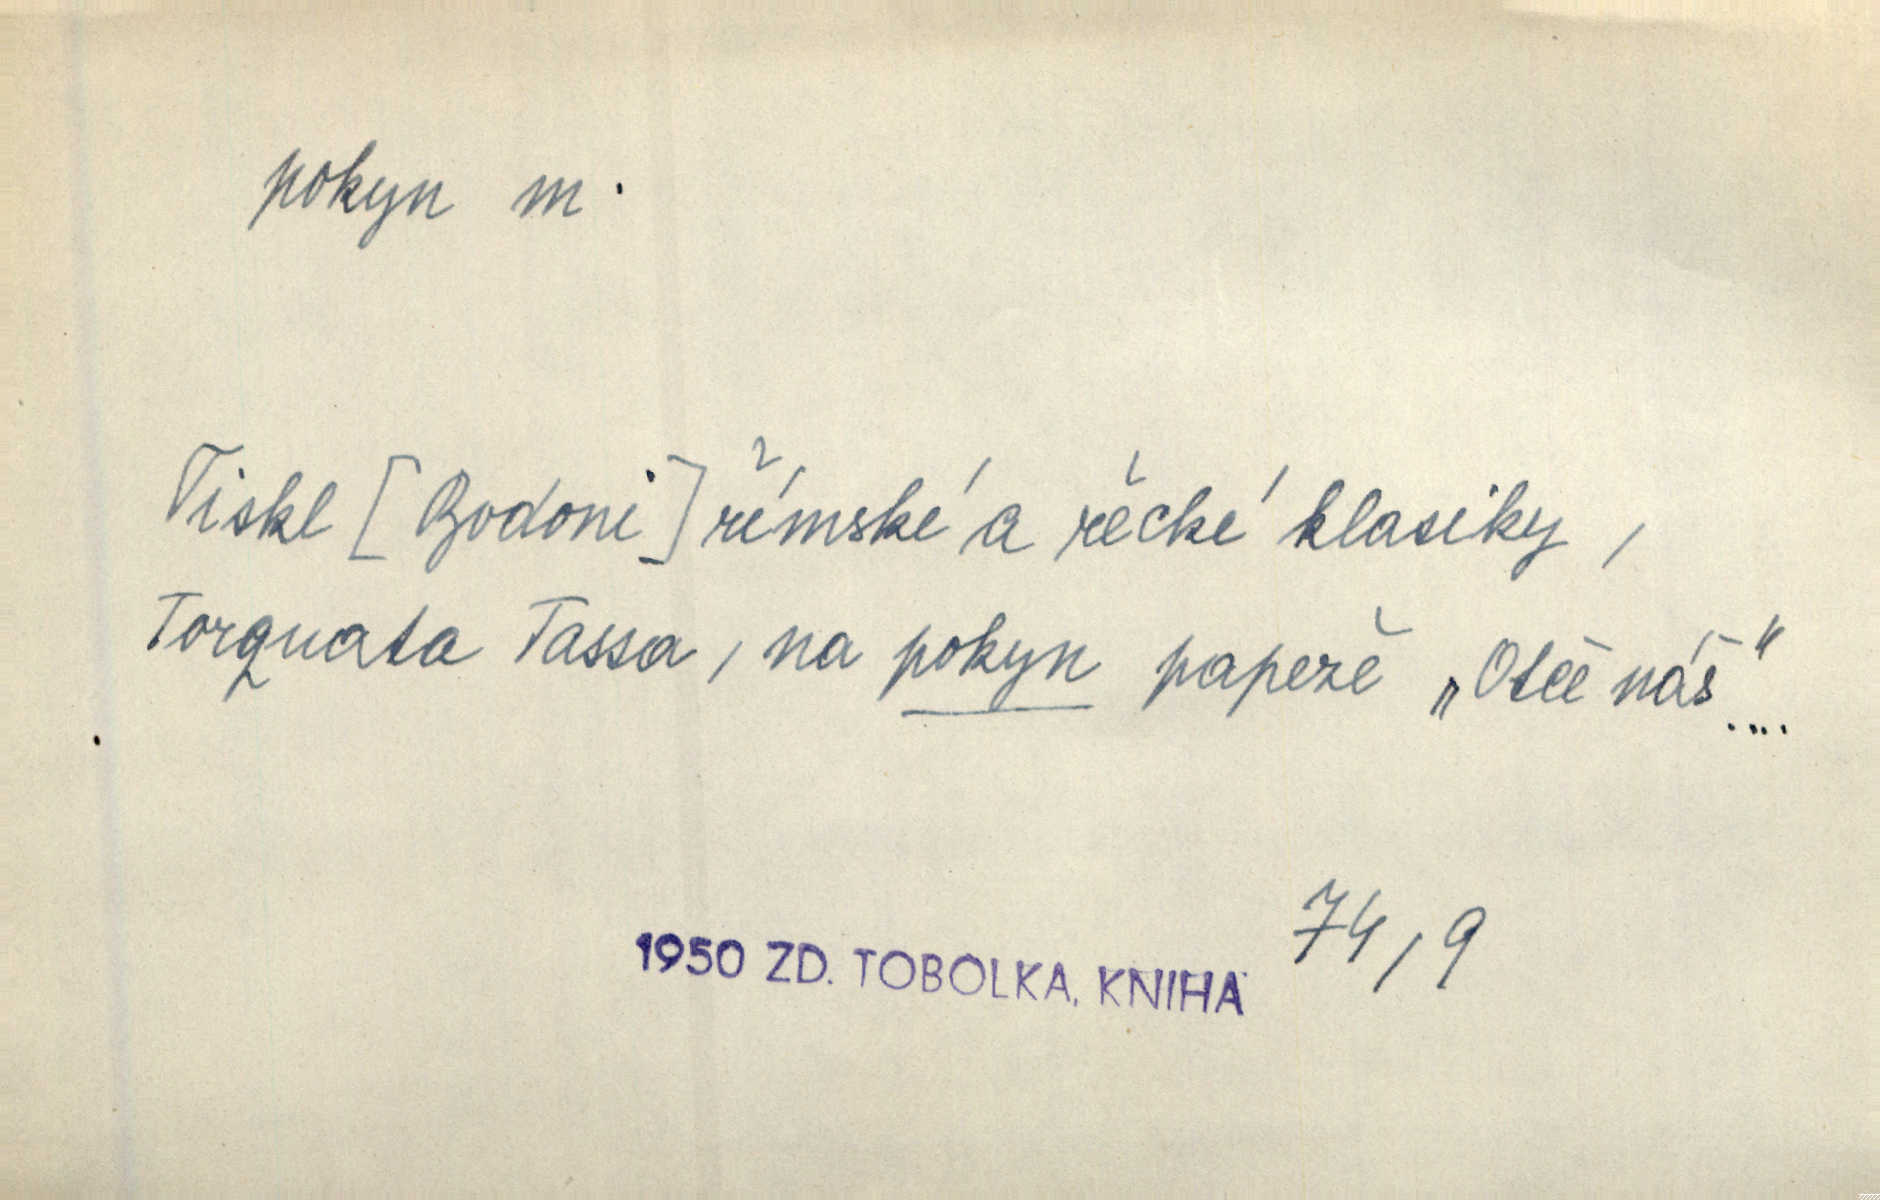 pokyn m.
Tiskl [Bodoni] římské a řecké klasiky,
Torquata Tassa, na pokyn papeže „Otče náš"....
74,9
1950 ZD. TOBOLKA, KNIHA